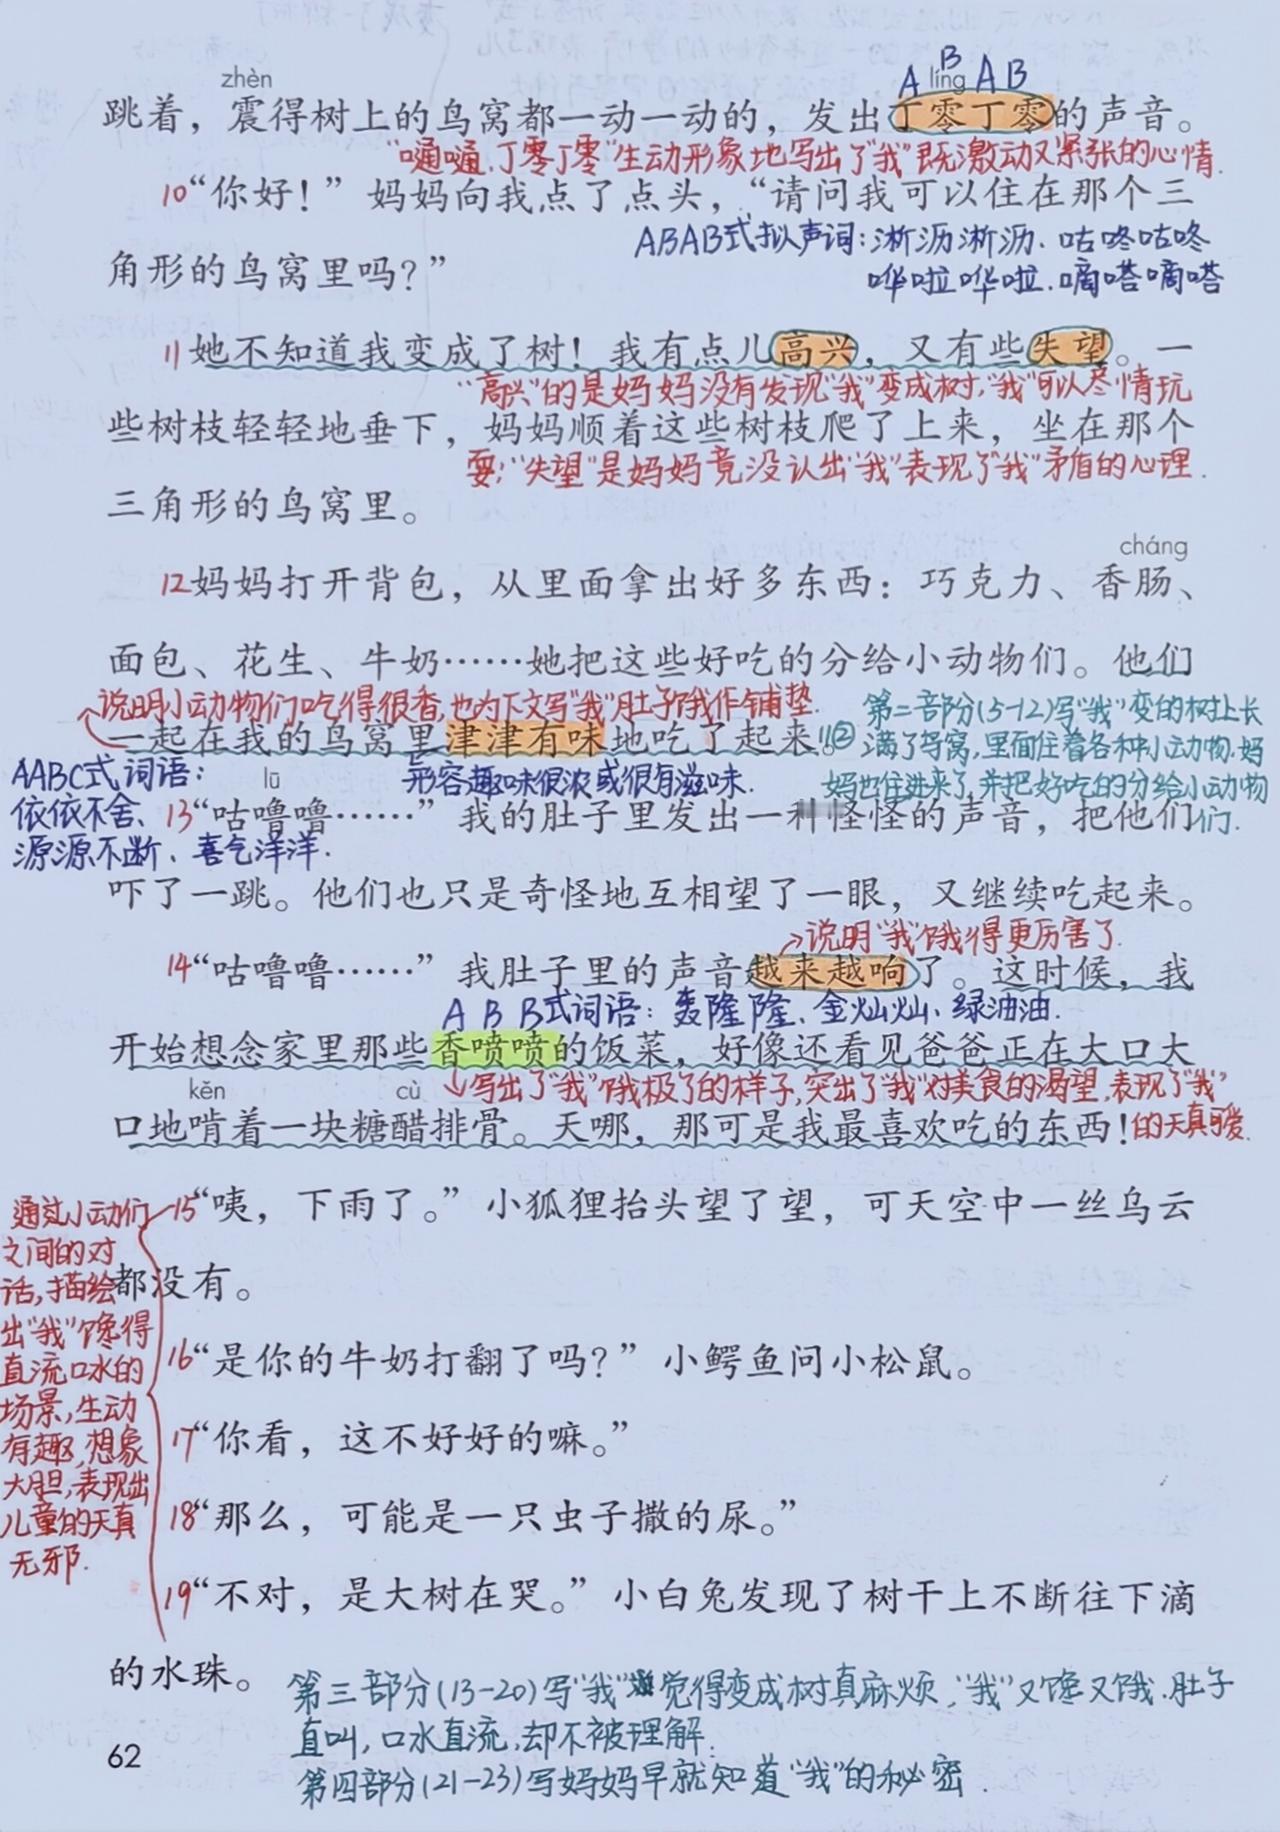 zhèn
A B líng A B
跳着，震得树上的鸟窝都一动一动的，发出丁零丁零的声音。
“嗵嗵、丁零丁零”生动形象地写出了“我”既激动又紧张的心情.
10“你好！”妈妈向我点了点头，“请问我可以住在那个三
ABAB式拟声词:淅沥淅沥、咕咚咕咚
角形的鸟窝里吗？”
哗啦哗啦、嘀嗒嘀嗒
11她不知道我变成了树！我有点儿高兴，又有些失望。一
“高兴”的是妈妈没有发现“我”变成树,“我”可以尽情玩
些树枝轻轻地垂下，妈妈顺着这些树枝爬了上来，坐在那个
耍;“失望”是妈妈竟没认出“我”表现了“我”矛盾的心理.
三角形的鸟窝里。
cháng
12妈妈打开背包，从里面拿出好多东西：巧克力、香肠、
面包、花生、牛奶……她把这些好吃的分给小动物们。他们
说明小动物们吃得很香,也为下文写“我”肚子饿作铺垫.
一起在我的鸟窝里津津有味地吃了起来。||②
第二部分(5-12)写“我”变的树上长
满了鸟窝,里面住着各种小动物.妈
妈也住进来了,并把好吃的分给小动物
们.
形容趣味很浓或很有滋味.
AABC式词语:
依依不舍、
源源不断、喜气洋洋.
lū
13“咕噜噜……”我的肚子里发出一种怪怪的声音，把他们
吓了一跳。他们也只是奇怪地互相望了一眼，又继续吃起来。
说明“我”饿得更厉害了.
14“咕噜噜……”我肚子里的声音越来越响了。这时候，我
ABB式词语:轰隆隆、金灿灿、绿油油.
开始想念家里那些香喷喷的饭菜，好像还看见爸爸正在大口大
写出了“我”饿极了的样子,突出了“我”对美食的渴望,表现了“我”
的天真可爱.
kěn cù
口地啃着一块糖醋排骨。天哪，那可是我最喜欢吃的东西！
15“咦，下雨了。”小狐狸抬头望了望，可天空中一丝乌云
都没有。
16“是你的牛奶打翻了吗？”小鳄鱼问小松鼠。
17“你看，这不好好的嘛。”
18“那么，可能是一只虫子撒的尿。”
19“不对，是大树在哭。”小白兔发现了树干上不断往下滴
的水珠。
通过小动物们
之间的对
话,描绘
出“我”馋得
直流口水的
场景,生动
有趣,想象
大胆,表现出
儿童的天真
无邪.
第三部分(13-20)写“我”觉得变成树真麻烦,“我”又馋又饿、肚子
直叫,口水直流,却不被理解.
第四部分(21-23)写妈妈早就知道“我”的秘密.
62